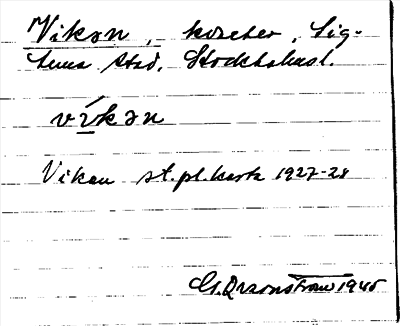 Vikon, kvarter, Sig-
tuna stad, Stockholmsl.
víkən
Viken st.pl.karta 1927-28
G. Drannström 1945